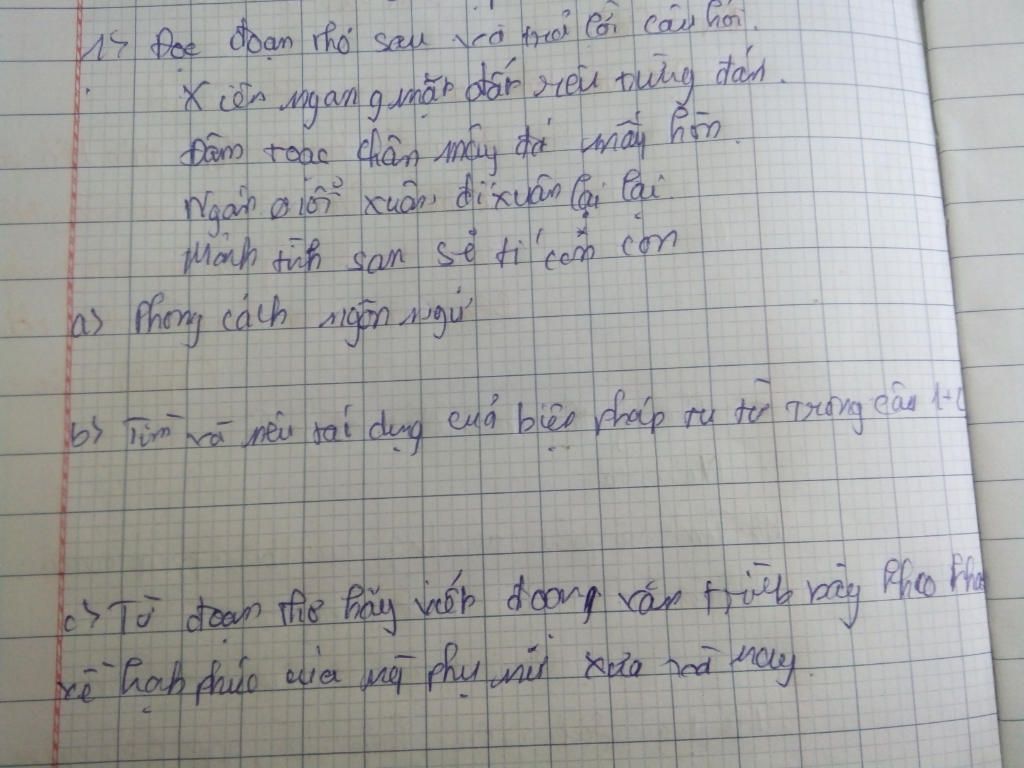 1) Đọc đoạn thơ sau và trả lời câu hỏi.
Xiên ngang mặt đất rêu từng đám.
Đâm toạc chân mây đá mấy hòn.
Ngán nỗi xuân đi xuân lại lại.
Mảnh tình san sẻ tí con con
a) Phong cách ngôn ngữ
b) Tìm và nêu tác dụng của biện pháp tu từ trong câu 1+
c) Từ đoạn thơ hãy viết đoạn văn trình bày
về hạnh phúc của người phụ nữ xưa và nay.